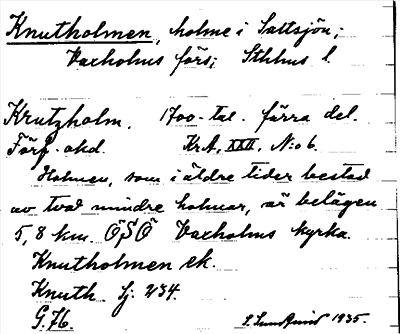 Knutholmen, holme i Saltsjön;
Vaxholms förs; Sthlms l.
Krutzholm. 1700-tal. förra del.
Förf. okd. KrA, XXII, N:o 6.
Holmen, som i äldre tider bestod
av två mindre holmar, är belägen
5,8 km. ÖSÖ Vaxholms kyrka.
Knutholmen ek.
Knuth Sj. 234.
G. 76. 1935.